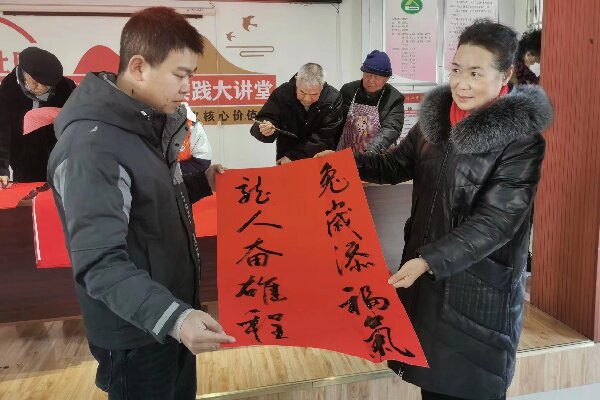 兔歲添福氣
龍人奋雄程
践大讲堂
核心价值